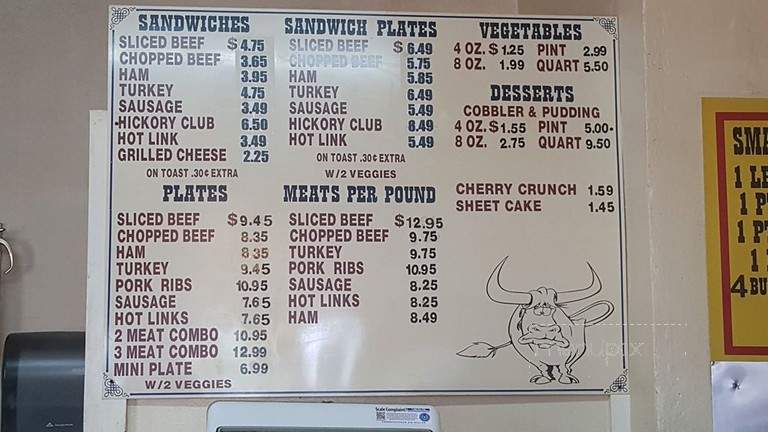 SANDWICHES
SLICED BEEF $4.75
CHOPPED BEEF 3.65
HAM 3.95
TURKEY 4.75
SAUSAGE 3.49
HICKORY CLUB 6.50
HOT LINK 3.49
GRILLED CHEESE 2.25
ON TOAST .30¢ EXTRA
SANDWICH PLATES
SLICED BEEF $6.49
CHOPPED BEEF 5.75
HAM 5.85
TURKEY 6.49
SAUSAGE 5.49
HICKORY CLUB 8.49
HOT LINK 5.49
ON TOAST .30¢ EXTRA
W/2 VEGGIES
VEGETABLES
4 OZ. $1.25 PINT 2.99
8 OZ. 1.99 QUART 5.50
DESSERTS
COBBLER & PUDDING
4 OZ. $1.55 PINT 5.00
8 OZ. 2.75 QUART 9.50
CHERRY CRUNCH 1.59
SHEET CAKE 1.45
PLATES
SLICED BEEF $9.45
CHOPPED BEEF 8.35
HAM 8.35
TURKEY 9.45
PORK RIBS 10.95
SAUSAGE 7.65
HOT LINKS 7.65
2 MEAT COMBO 10.95
3 MEAT COMBO 12.99
MINI PLATE 6.99
W/2 VEGGIES
MEATS PER POUND
SLICED BEEF $12.95
CHOPPED BEEF 9.75
TURKEY 9.75
PORK RIBS 10.95
SAUSAGE 8.25
HOT LINKS 8.25
HAM 8.49
SMA
1 LE
1 P
1 P
1
4 BU
menupix
Scale Complaint?